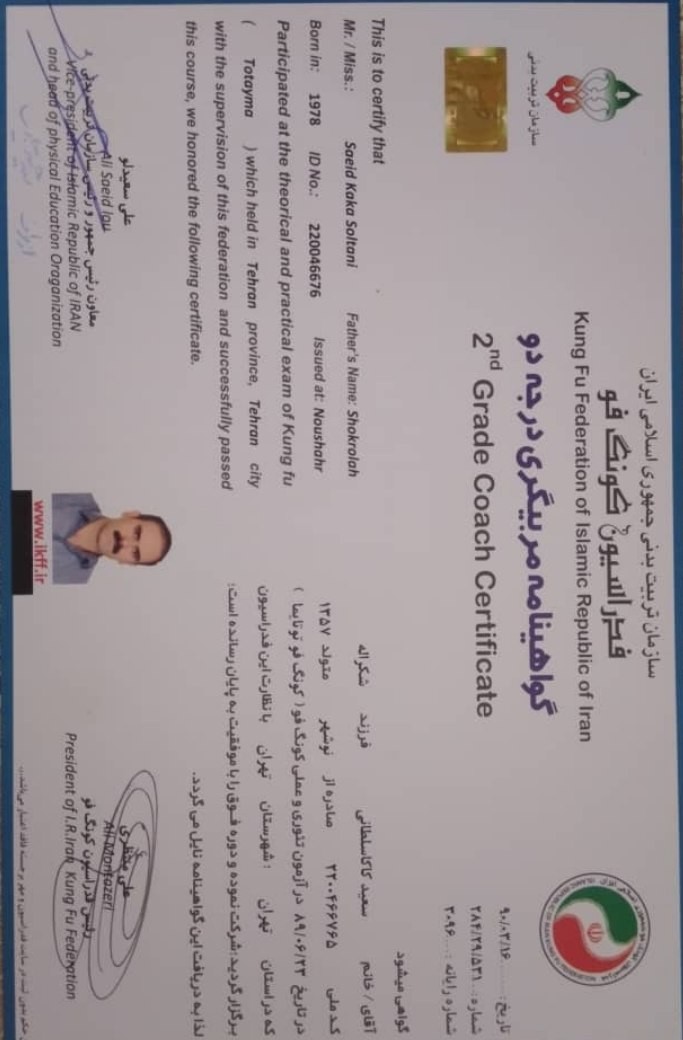 سازمان تربیت بدنی جمهوری اسلامی ایران
فدراسیون کونگ فو
Kung Fu Federation of Islamic Republic of Iran
گواهینامه مربیگری درجه دو
2nd Grade Coach Certificate
سازمان تربیت بدنی
تاریخ: ۹۰/۰۳/۱۶
شماره: ۲۸۴/۲۹/۵۳۱
شماره رایانه: ۳۰۹۶
This is to certify that
Mr. / Miss.: Saeid Kaka Soltani Father's Name: Shokrolah
Born in: 1978 ID No.: 220046676 Issued at: Noushahr
Participated at the theorical and practical exam of Kung fu
( Totayma ) which held in Tehran province, Tehran city
with the supervision of this federation and successfully passed
this course, we honored the following certificate.
گواهی میشود
آقای / خانم سعید کاکاسلطانی فرزند شکراله
کد ملی ۲۲۰۰۴۶۶۷۶۵ صادره از نوشهر متولد ۱۳۵۷
در تاریخ ۸۹/۰۶/۲۳ در آزمون تئوری و عملی کونگ فو ( کونگ فو توتایما )
که در استان تهران شهرستان تهران با نظارت این فدراسیون
برگزار گردید؛ شرکت نموده و دوره فوق را با موفقیت به پایان رسانده است؛
لذا به دریافت این گواهینامه نایل می گردد.
علی سعیدلو
Ali Saeid lou
معاون رئیس جمهور و رئیس سازمان تربیت بدنی
Vice-president of Islamic Republic of IRAN
and head of physical Education Oraganization
علی منتظری
Ali Montazeri
رئیس فدراسیون کونگ فو
President of I.R.Iran Kung Fu Federation
www.ikff.ir